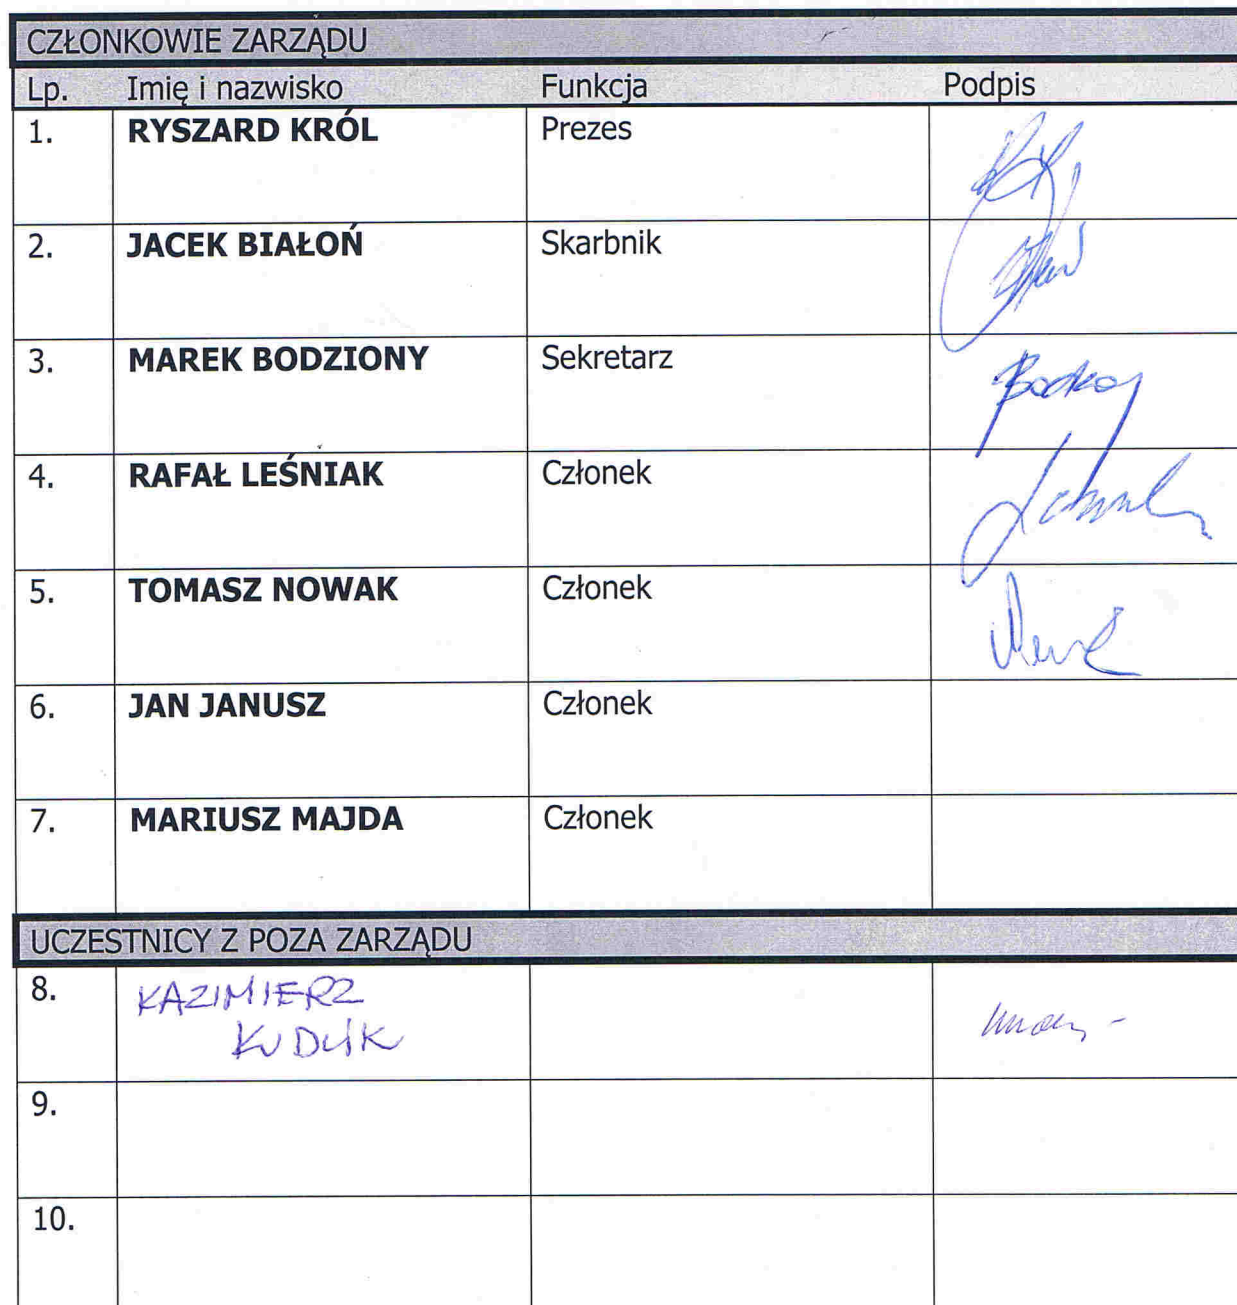 CZŁONKOWIE ZARZĄDU
Lp. Imię i nazwisko Funkcja Podpis
1. RYSZARD KRÓL Prezes
2. JACEK BIAŁOŃ Skarbnik
3. MAREK BODZIONY Sekretarz
4. RAFAŁ LEŚNIAK Członek
5. TOMASZ NOWAK Członek
6. JAN JANUSZ Członek
7. MARIUSZ MAJDA Członek
UCZESTNICY Z POZA ZARZĄDU
8. KAZIMIERZ
9.
10.